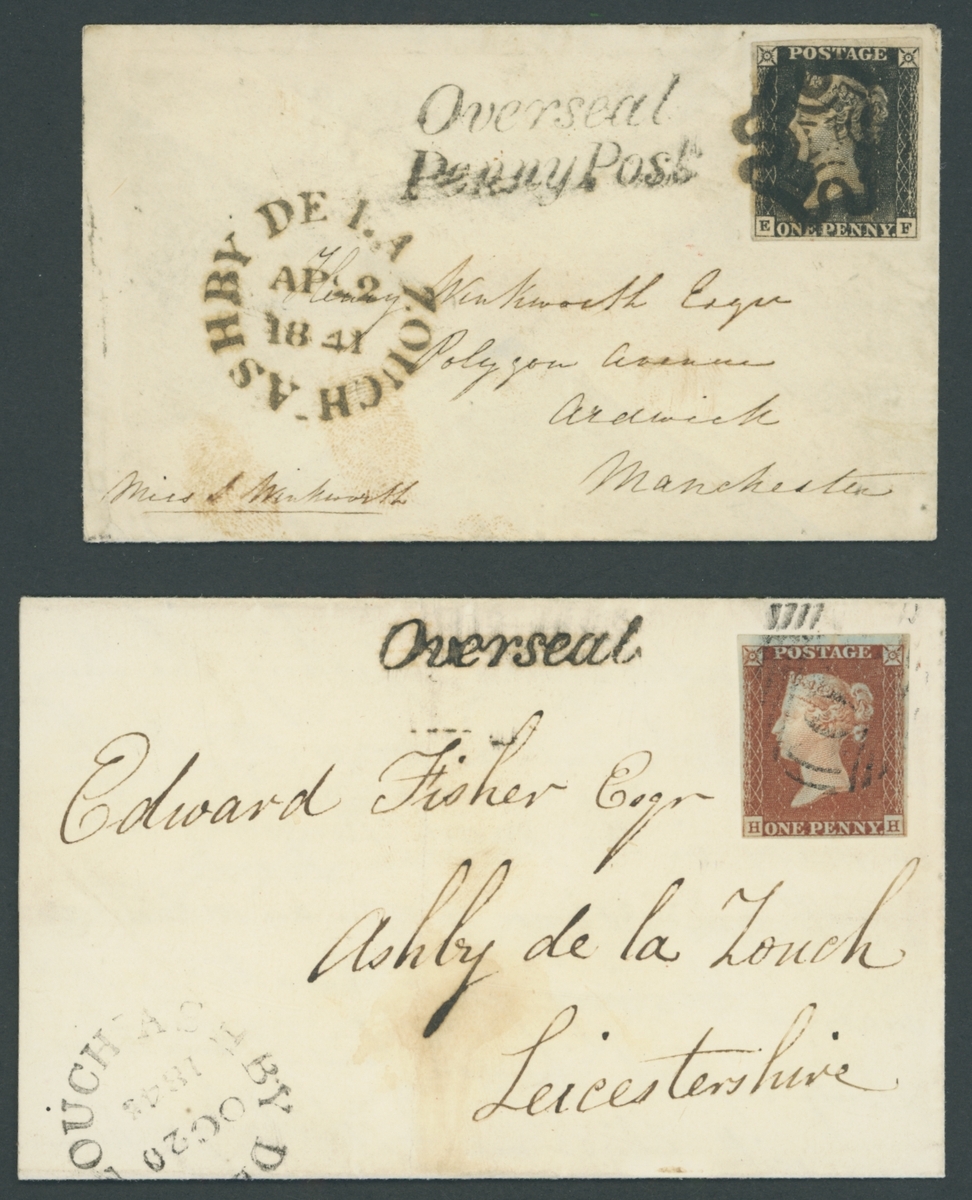 POSTAGE
E ONE PENNY. F
Overseal
Penny Post
ASHBY DE LA ZOUCH
AP 2
1841
Henry Winkworth Esqre
Polygon Avenue
Ardwick
Manchester
Miss Winkworth
Overseal
POSTAGE
H ONE PENNY. H
Edward Fisher Esqr
Ashby de la Zouch
Leicestershire
OUCH ASHBY DE
OC 20